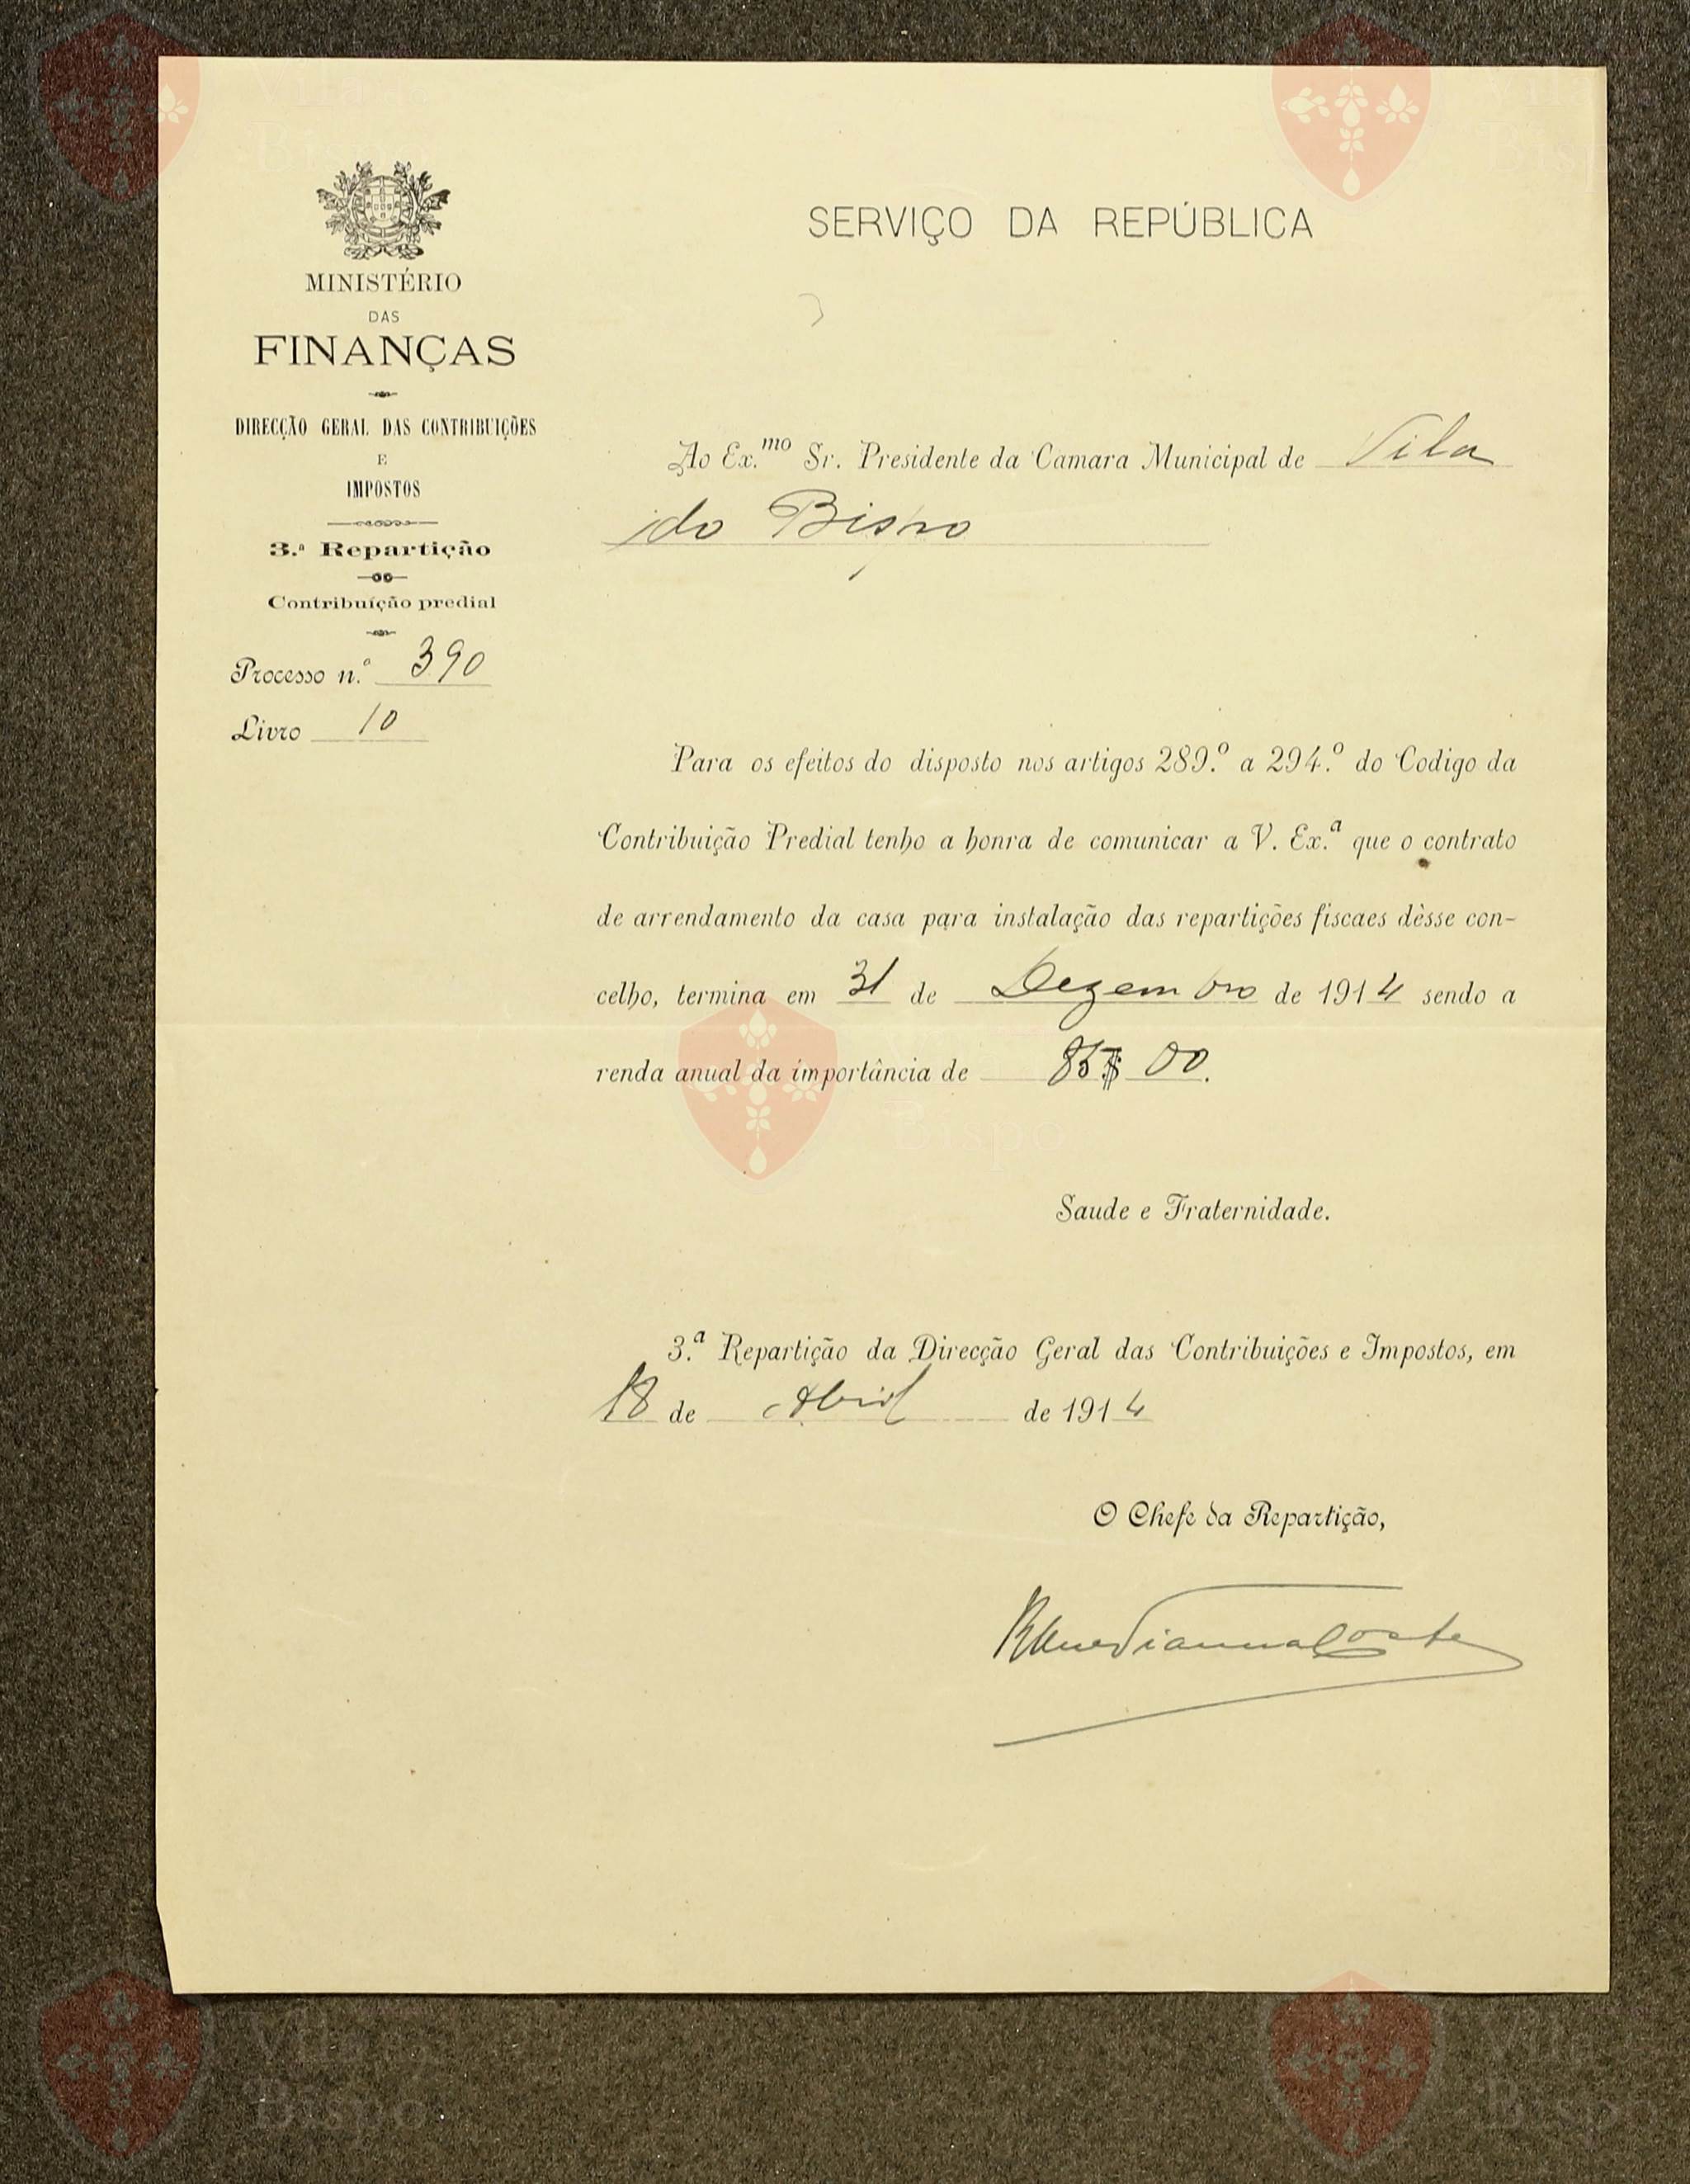 SERVIÇO DA REPÚBLICA
MINISTÉRIO
DAS
FINANÇAS
DIRECÇÃO GERAL DAS CONTRIBUIÇÕES
E
IMPOSTOS
3.ª Repartição
Contribuíção predial
Processo n.º 390
Livro 10
Ao Ex.mo Sr. Presidente da Camara Municipal de Vila
do Bispo
Para os efeitos do disposto nos artigos 289.º a 294.º do Codigo da
Contribuição Predial tenho a honra de comunicar a V. Ex.ª que o contrato
de arrendamento da casa para instalação das repartições fiscaes dèsse con-
celho, termina em 31 de Dezembro de 1914 sendo a
renda anual da importância de 85$00.
Saude e Fraternidade.
3.ª Repartição da Direcção Geral das Contribuições e Impostos, em
18 de Abril de 1914
O Chefe da Repartição,
Vianna Costa
Vila do
Bispo